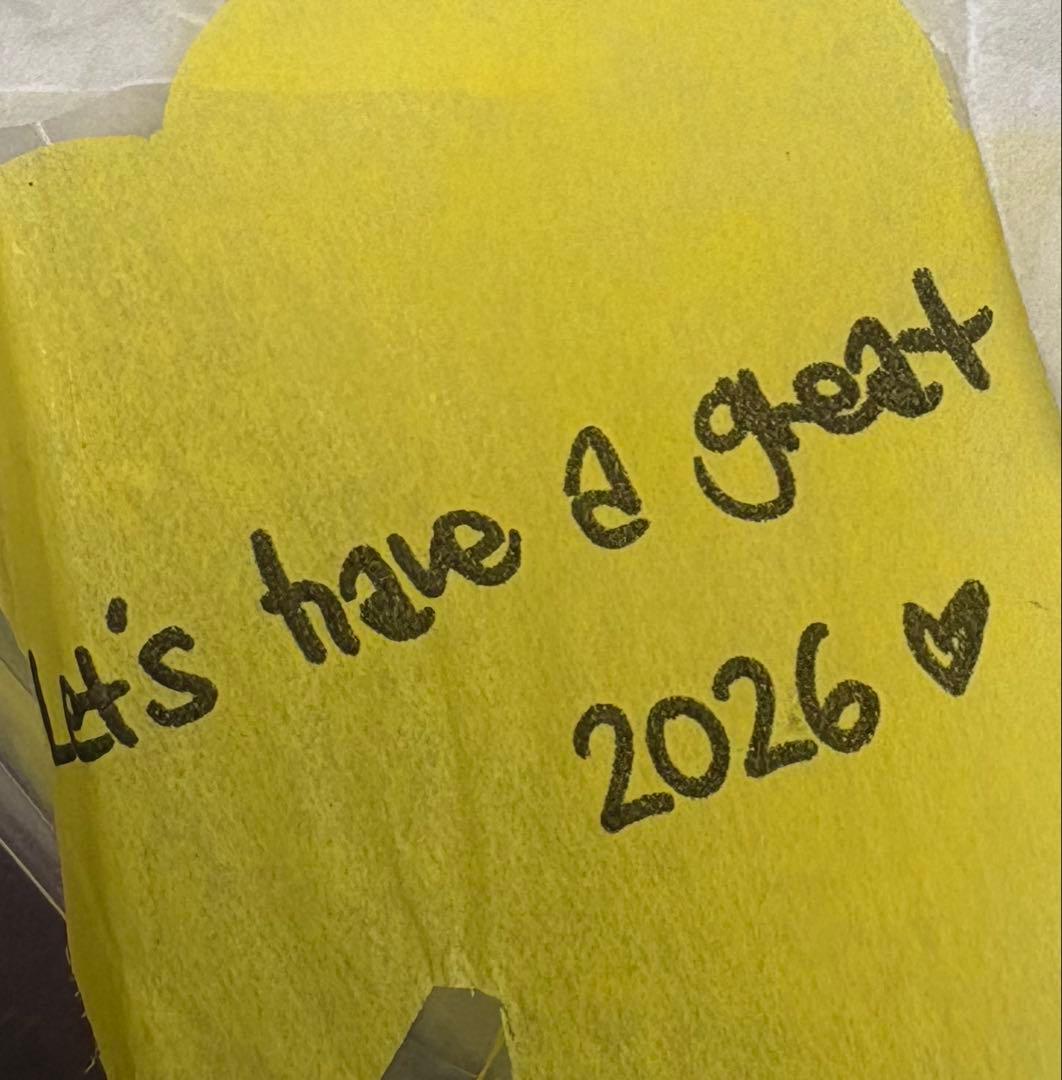 Let's have a great
2026 ♥